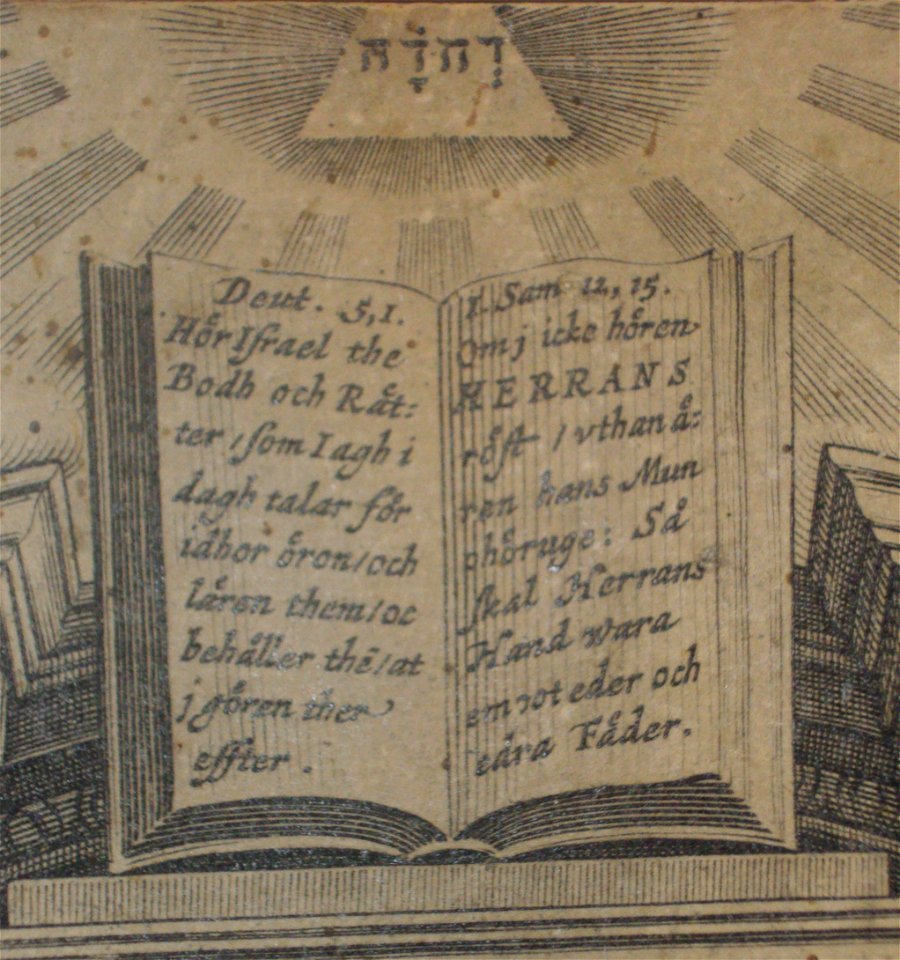 יְהוָֹה
Deut. 5,1.
Hår Israel the
Bodh och Råt:
ter, som Iagh i
dagh talar för
idhor öron/och
lären them/oc
behåller thē/at
j gören ther
effter.
I. Sam 12, 15.
Om j icke hören
HERRANS
röst / vthan å:
ren hans Mun
phöruge: Så
skal Herrans
Hand wara
emot eder och
edra Fäder.